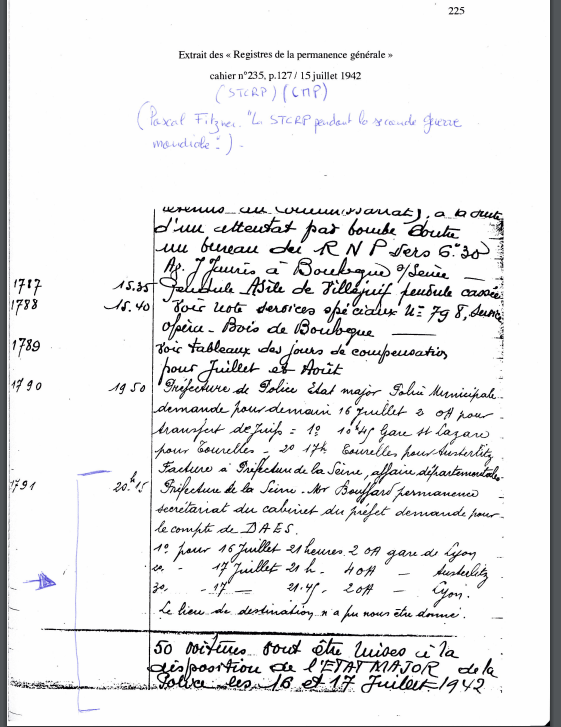 225
Extrait des « Registres de la permanence générale »
cahier n°235, p.127 / 15 juillet 1942
(STCRP) (CMP)
(Pascal "La STCRP pendant la seconde guerre
mondiale".) -
à la suite
d'un attentat par bombe contre
un bureau du RNP vers 6.30
Av. J Jaurès à Boulogne s/Seine —
1787 15.35 Pendule Asile de Villejuif pendule cassée
1788 15.40 Voir note services spéciaux N° 798, Service
opéra - Bois de Boulogne —
1789 Voir tableaux des jours de compensation
pour Juillet et Août
1790 19 50 Préfecture de Police Etat major Police Municipale
demande pour demain 16 juillet 2 OA pour
transport de juifs = 1° 10h45 Gare St Lazare
pour Tourelles - 2° 17h Tourelles pour Austerlitz
Facture à Préfecture de la Seine, affaires départementales
1791 20h15 Préfecture de la Seine - Mr Bouffard permanence
secrétariat du cabinet du préfet demande pour
le compte de DAES.
1° pour 16 Juillet 21 heures 2 OA gare de Lyon
2° - 17 Juillet 21 h. 4 OA — Austerlitz
3° - 17 — 21.45 - 2 OA — Lyon.
Le lieu de destination n'a pu nous être donné.
50 voitures sont être mises à la
disposition de l'ETAT MAJOR de la
Police les 16 et 17 Juillet 1942